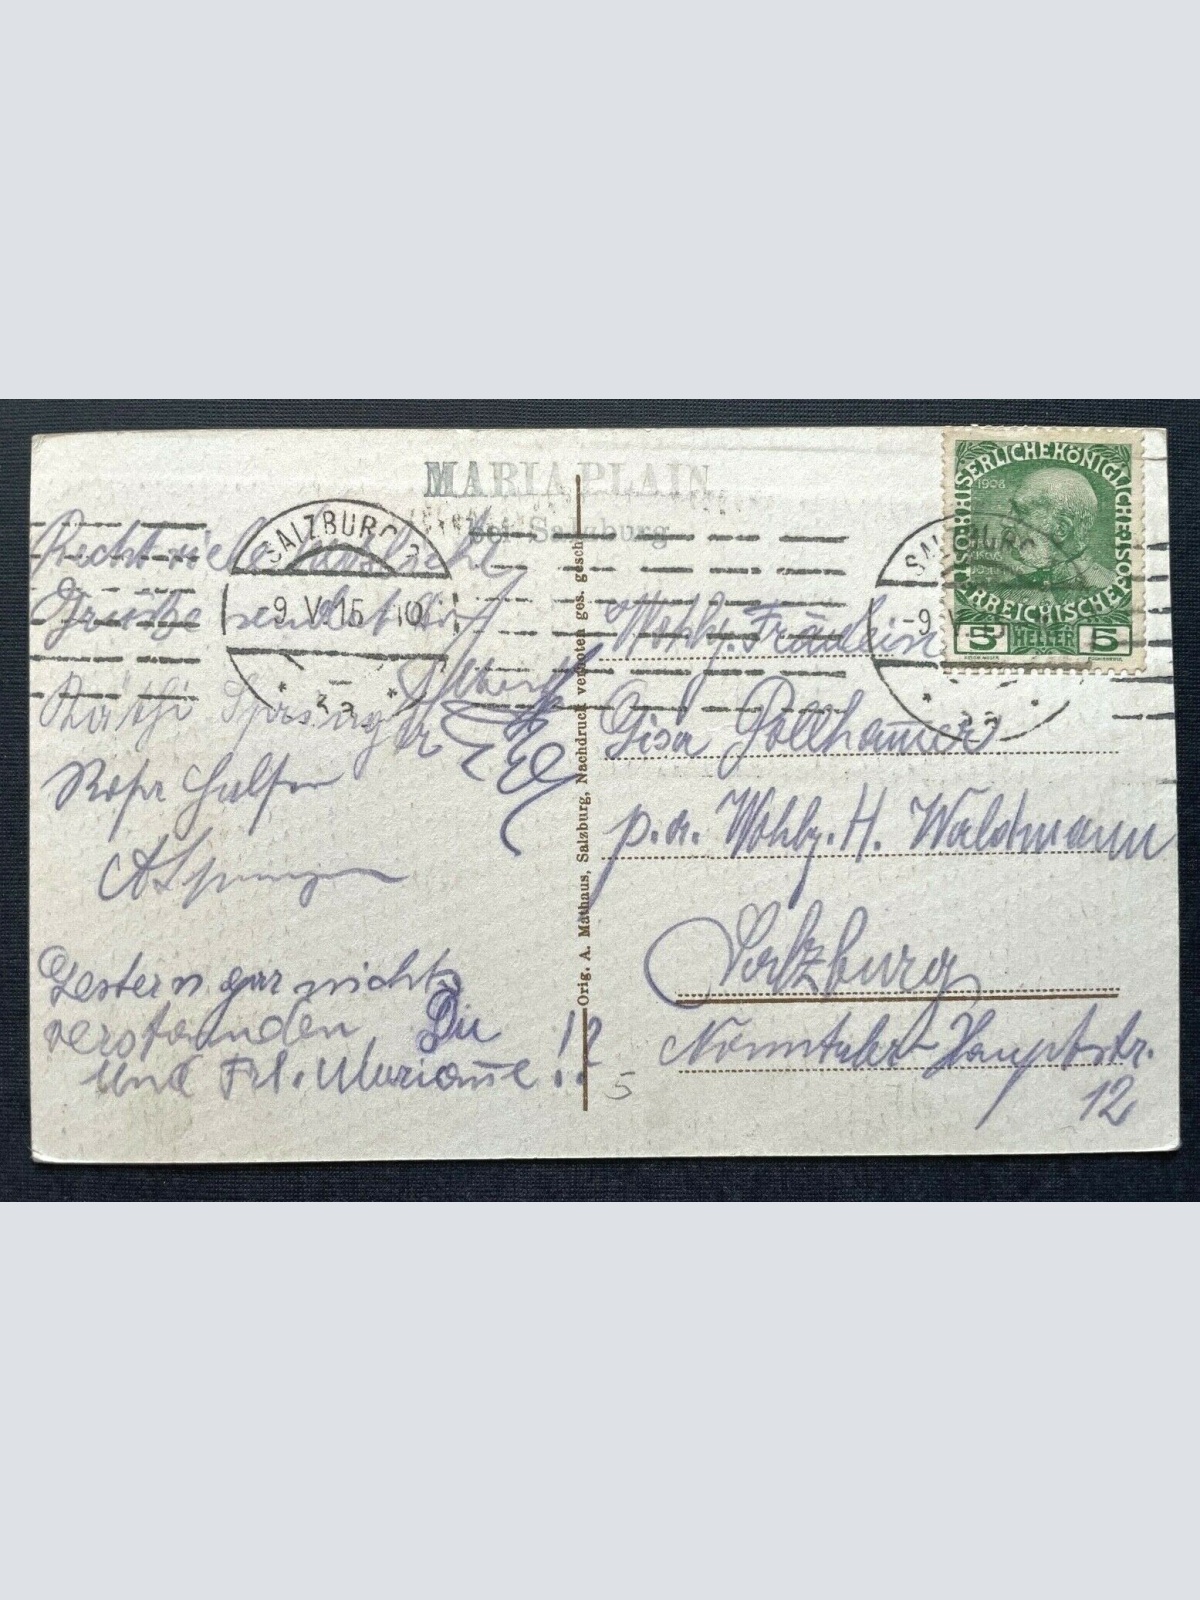 MARIA PLAIN
bei Salzburg
SALZBURG 2
9. V. 15 10
Recht viele herzliche
Grüße sendet Dir
Albert
Käthi Springer
Rosa
Gestern gar nichts
verstanden Du
und Frl. Mariañe!!?
Orig. A. Mathaus, Salzburg, Nachdruck verboten ges. gesch.
KAISERLICHE KÖNIGLICHE ÖSTERREICHISCHE POST
1908
5 HELLER 5
SALZBURG
9
Wohlg. Fräulein
Gisa Pollham̄er
p. a. Wohlg. H. Waldmann
Salzburg
Nonntaler-Hauptstr.
12
5